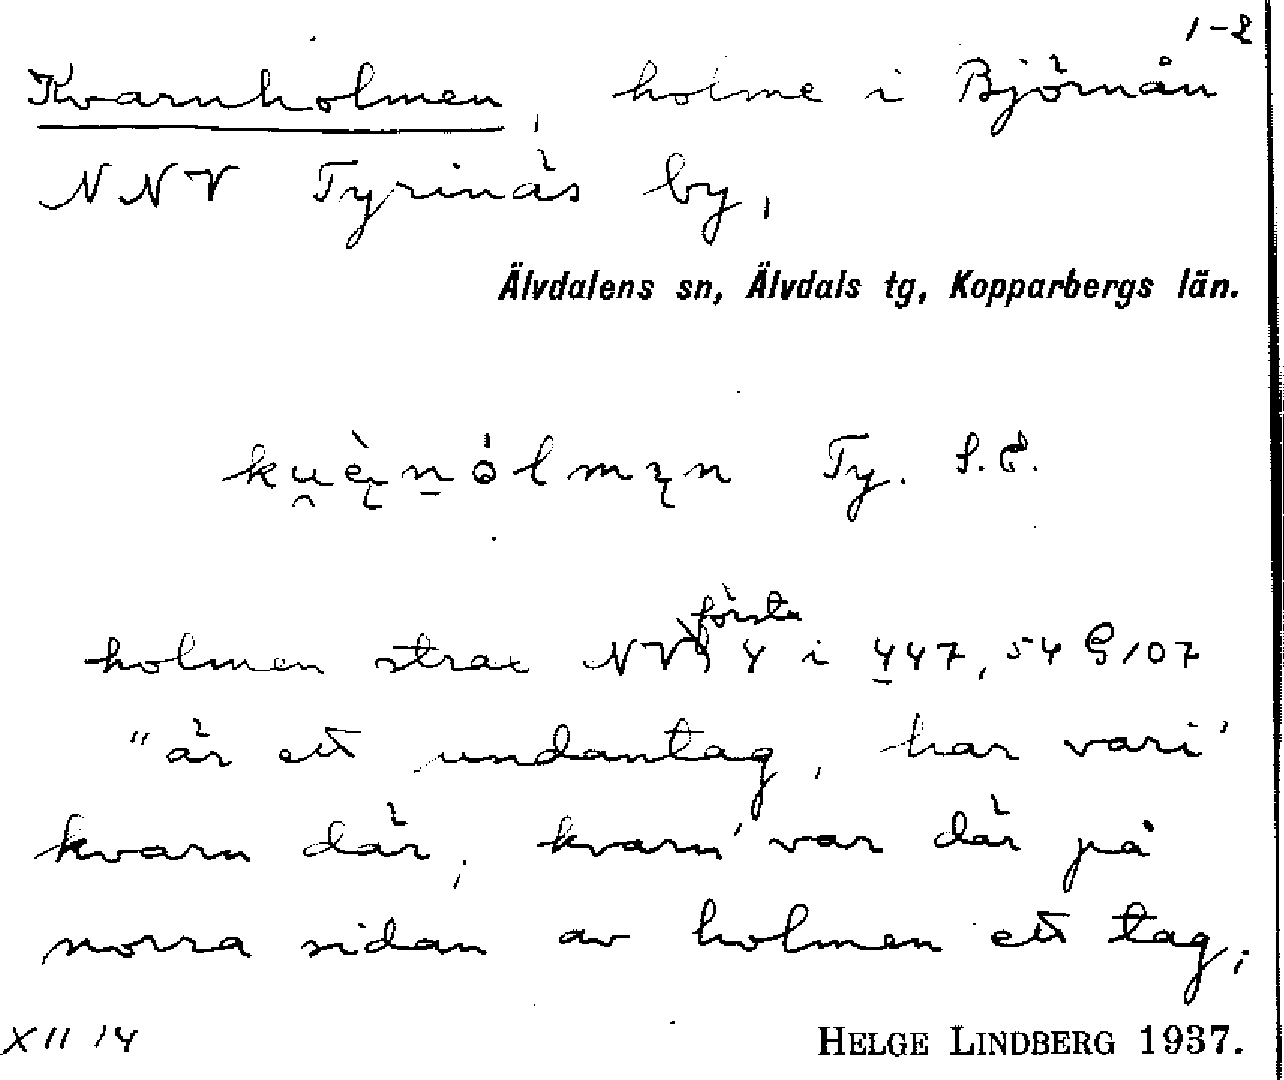 1-2
Kvarnholmen, holme i Björnån
NNV Tyrinäs by,
Älvdalens sn, Älvdals tg, Kopparbergs län.
Ty.
första
holmen strax NV 4 i 447, 54 G 107
"är ett undantag, har vari'
kvarn där, kvarn' var där på
norra sidan av holmen ett tag,
XII 14
HELGE LINDBERG 1937.